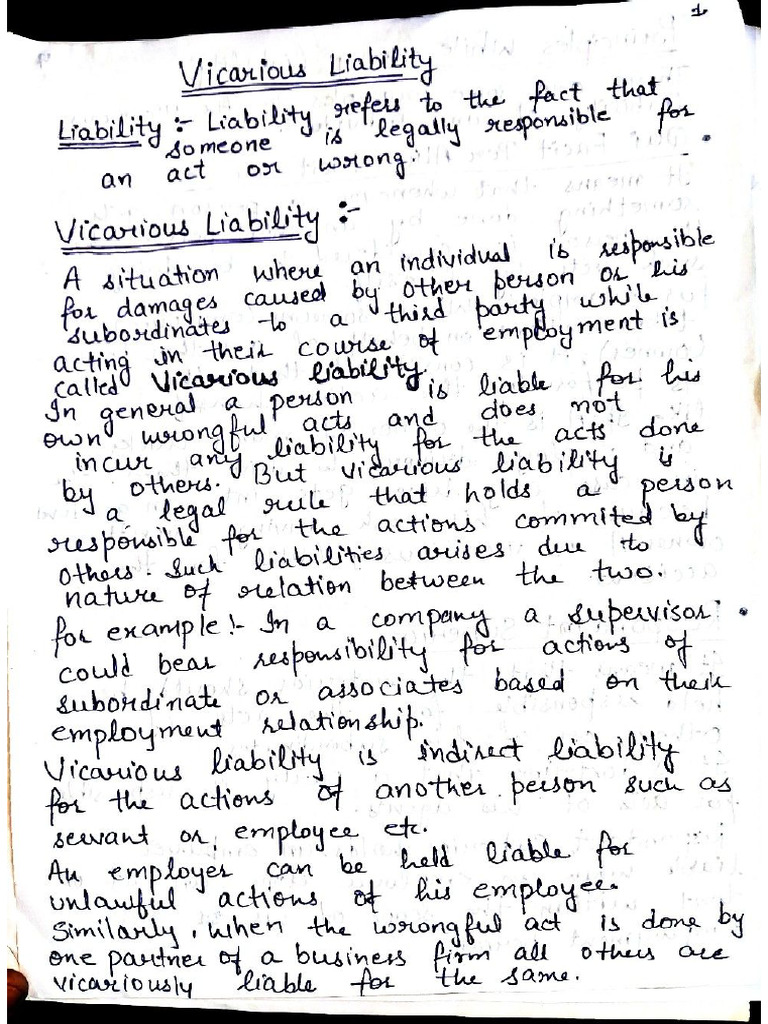 1
Vicarious Liability
Liability :- Liability refers to the fact that
someone is legally responsible for
an act or wrong.
Vicarious Liability :-
A situation where an individual is responsible
for damages caused by other person or his
subordinates to a third party while
acting in their course of employment is
called Vicarious liability.
In general a person is liable for his
own wrongful acts and does not
incur any liability for the acts done
by others. But vicarious liability is
a legal rule that holds a person
responsible for the actions commited by
others. Such liabilities arises due to
nature of relation between the two.
for example:- In a company a supervisor
could bear responsibility for actions of
subordinate or associates based on their
employment relationship.
Vicarious liability is indirect liability
for the actions of another person such as
servant or employee etc.
An employer can be held liable for
unlawful actions of his employee.
Similarly, when the wrongful act is done by
one partner of a business firm all others are
vicariously liable for the same.